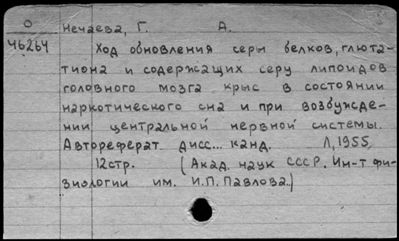 О
46264
Нечаева, Г. А.
Ход обновления серы белков, глюта-
тиона и содержащих серу липоидов
головного мозга крыс в состоянии
наркотического сна и при возбужде-
нии центральной нервной системы.
Автореферат дисс... канд. Л, 1955
12стр. (Акад. наук СССР. Ин-т фи-
зиологии им. И.П. Павлова.)